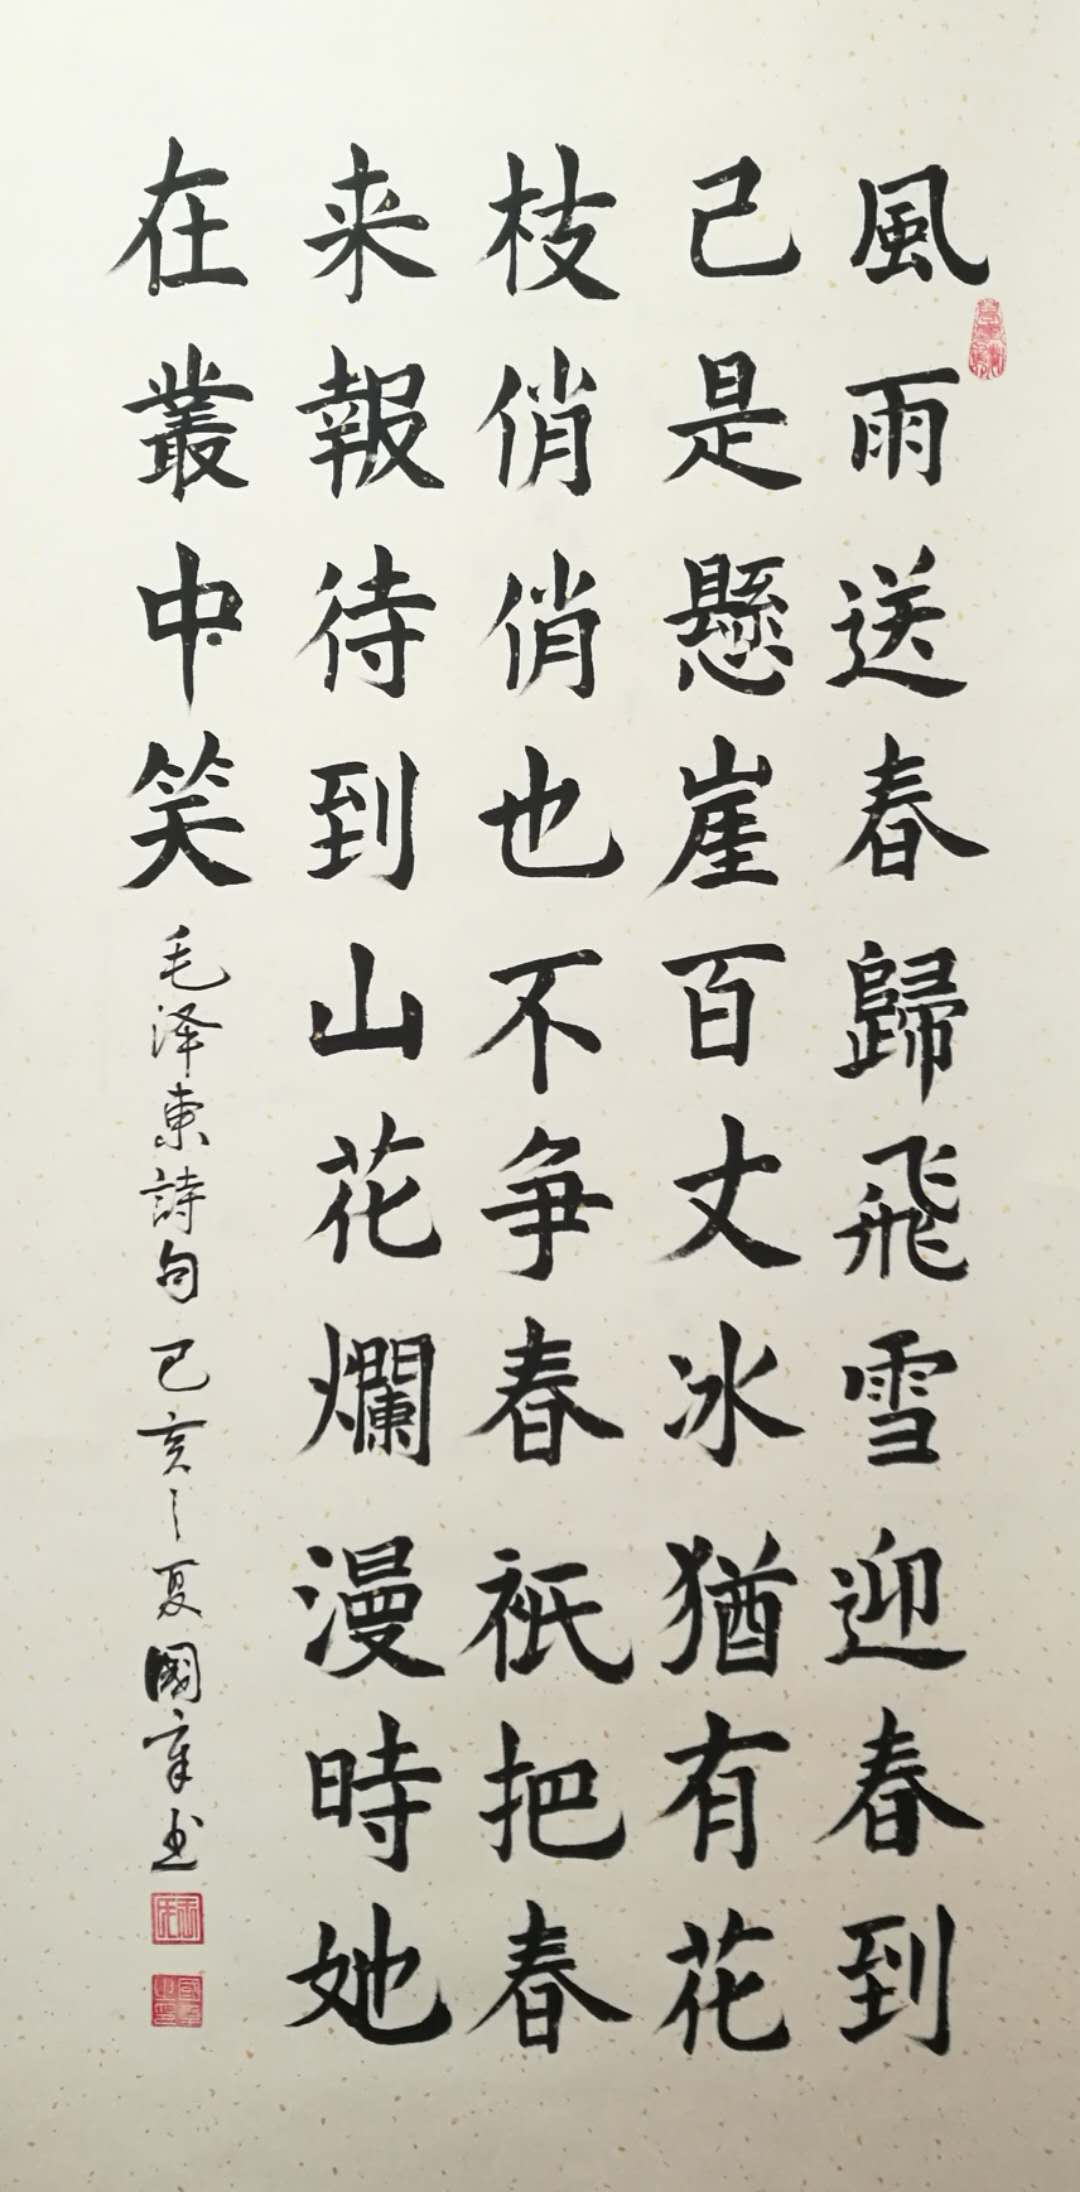 風雨送春歸飛雪迎春到
己是懸崖百丈冰猶有花
枝俏俏也不争春祇把春
来報待到山花爛漫時她
在叢中笑
毛泽東詩句己亥之夏國章书